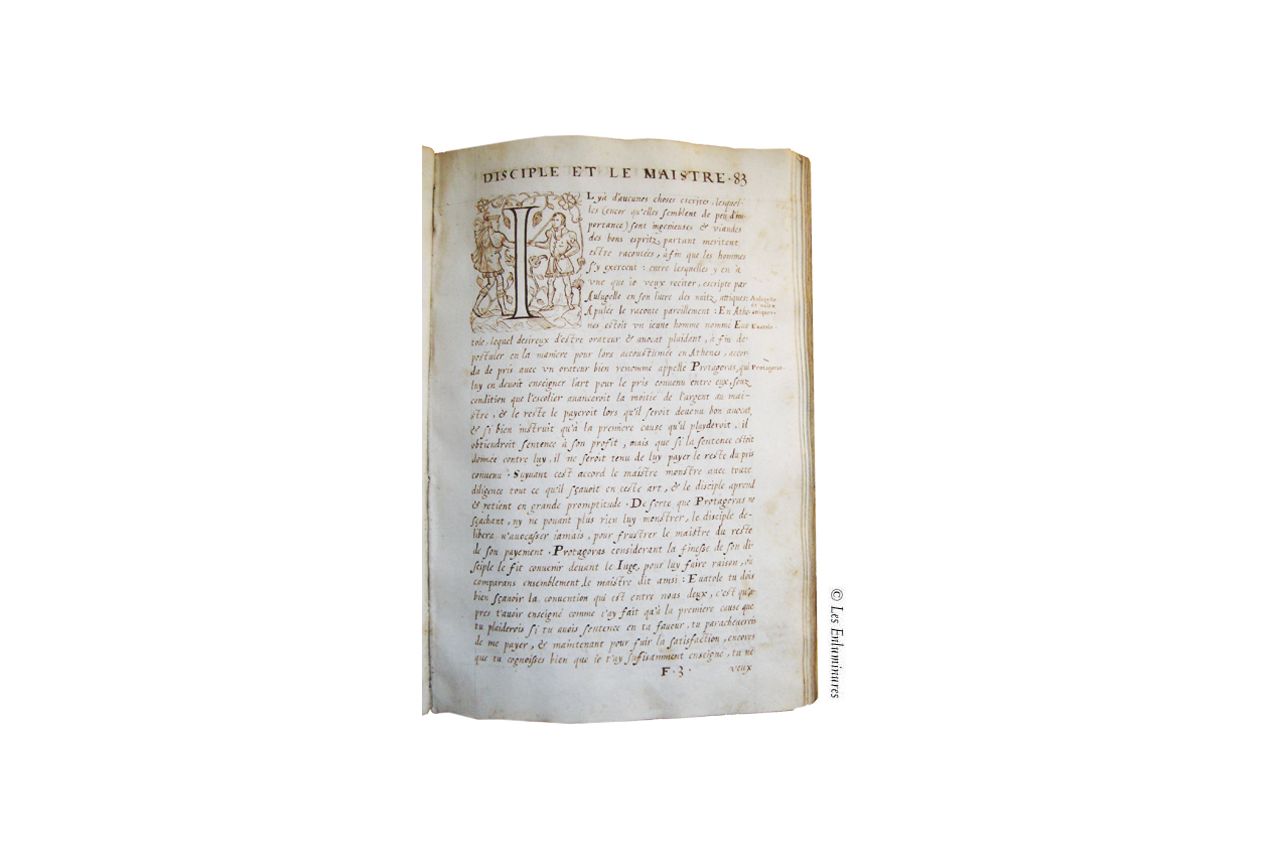 DISCIPLE ET LE MAISTRE · 83
I
L y'a d'aucunes choses escrites, lesquel-
les (encor qu'elles semblent de peu d'im-
portance) sont ingenieuses & viandes
des bons espritz, partant meritent
estre racontées, à fin que les hommes
s'y exercent : entre lesquelles y en à
vne que ie veux reciter, escripte par
Aulugelle en son liure des nuitz attiques:
Aulugelle
et nuitz
attiques.
Apulée le raconte pareillement : En Athe-
nes estoit vn ieane homme nommé Eua
Euatole.
tole, lequel desireux d'estre orateur & avocat plaidant, à fin de
postuler en la maniere pour lors accoustumée en Athenes, accor
da de pris avec vn orateur bien renomme appelle Protagoras, qui
Protagoras.
luy en devoit enseigner l'art pour le pris convenu entre eux, souz
condition que l'escolier auanceroit la moitié de l'argent au mai-
stre, & le reste le payeroit lors qu'il seroit deuenu bon auocat,
& si bien instruit qu'à la premiere cause qu'il playderoit, il
obtiendroit sentence à son profit, mais que si la sentence estoit
donnée contre luy, il ne seroit tenu de luy payer le reste du pris
convenu · Suyuant cest accord le maistre monstre avec toute
diligence tout ce qu'il sçauoit en ceste art, & le disciple aprend
& retient en grande promptitude · De sorte que Protagoras ne
sçachant, ny ne pouant plus rien luy monstrer, le disciple de-
libera n'auocasser iamais, pour frustrer le maistre du reste
de son payement · Protagoras considerant la finesse de son di-
sciple le fit convenir deuant le Iuge, pour luy faire raison, ou
comparans ensemblement, le maistre dit ainsi : Euatole tu dois
bien sçauoir la convention qui est entre nous deux, c'est qu'a-
pres t'auoir enseigné comme i'ay fait qu'à la premiere cause que
tu plaiderois si tu auois sentence en ta faueur, tu paracheuerois
de me payer, & maintenant pour fuir la satisfaction, encores
que tu cognoisses bien que ie t'ay sufisamment enseigne, tu ne
F · 3 ·
veux
© Les Enluminures